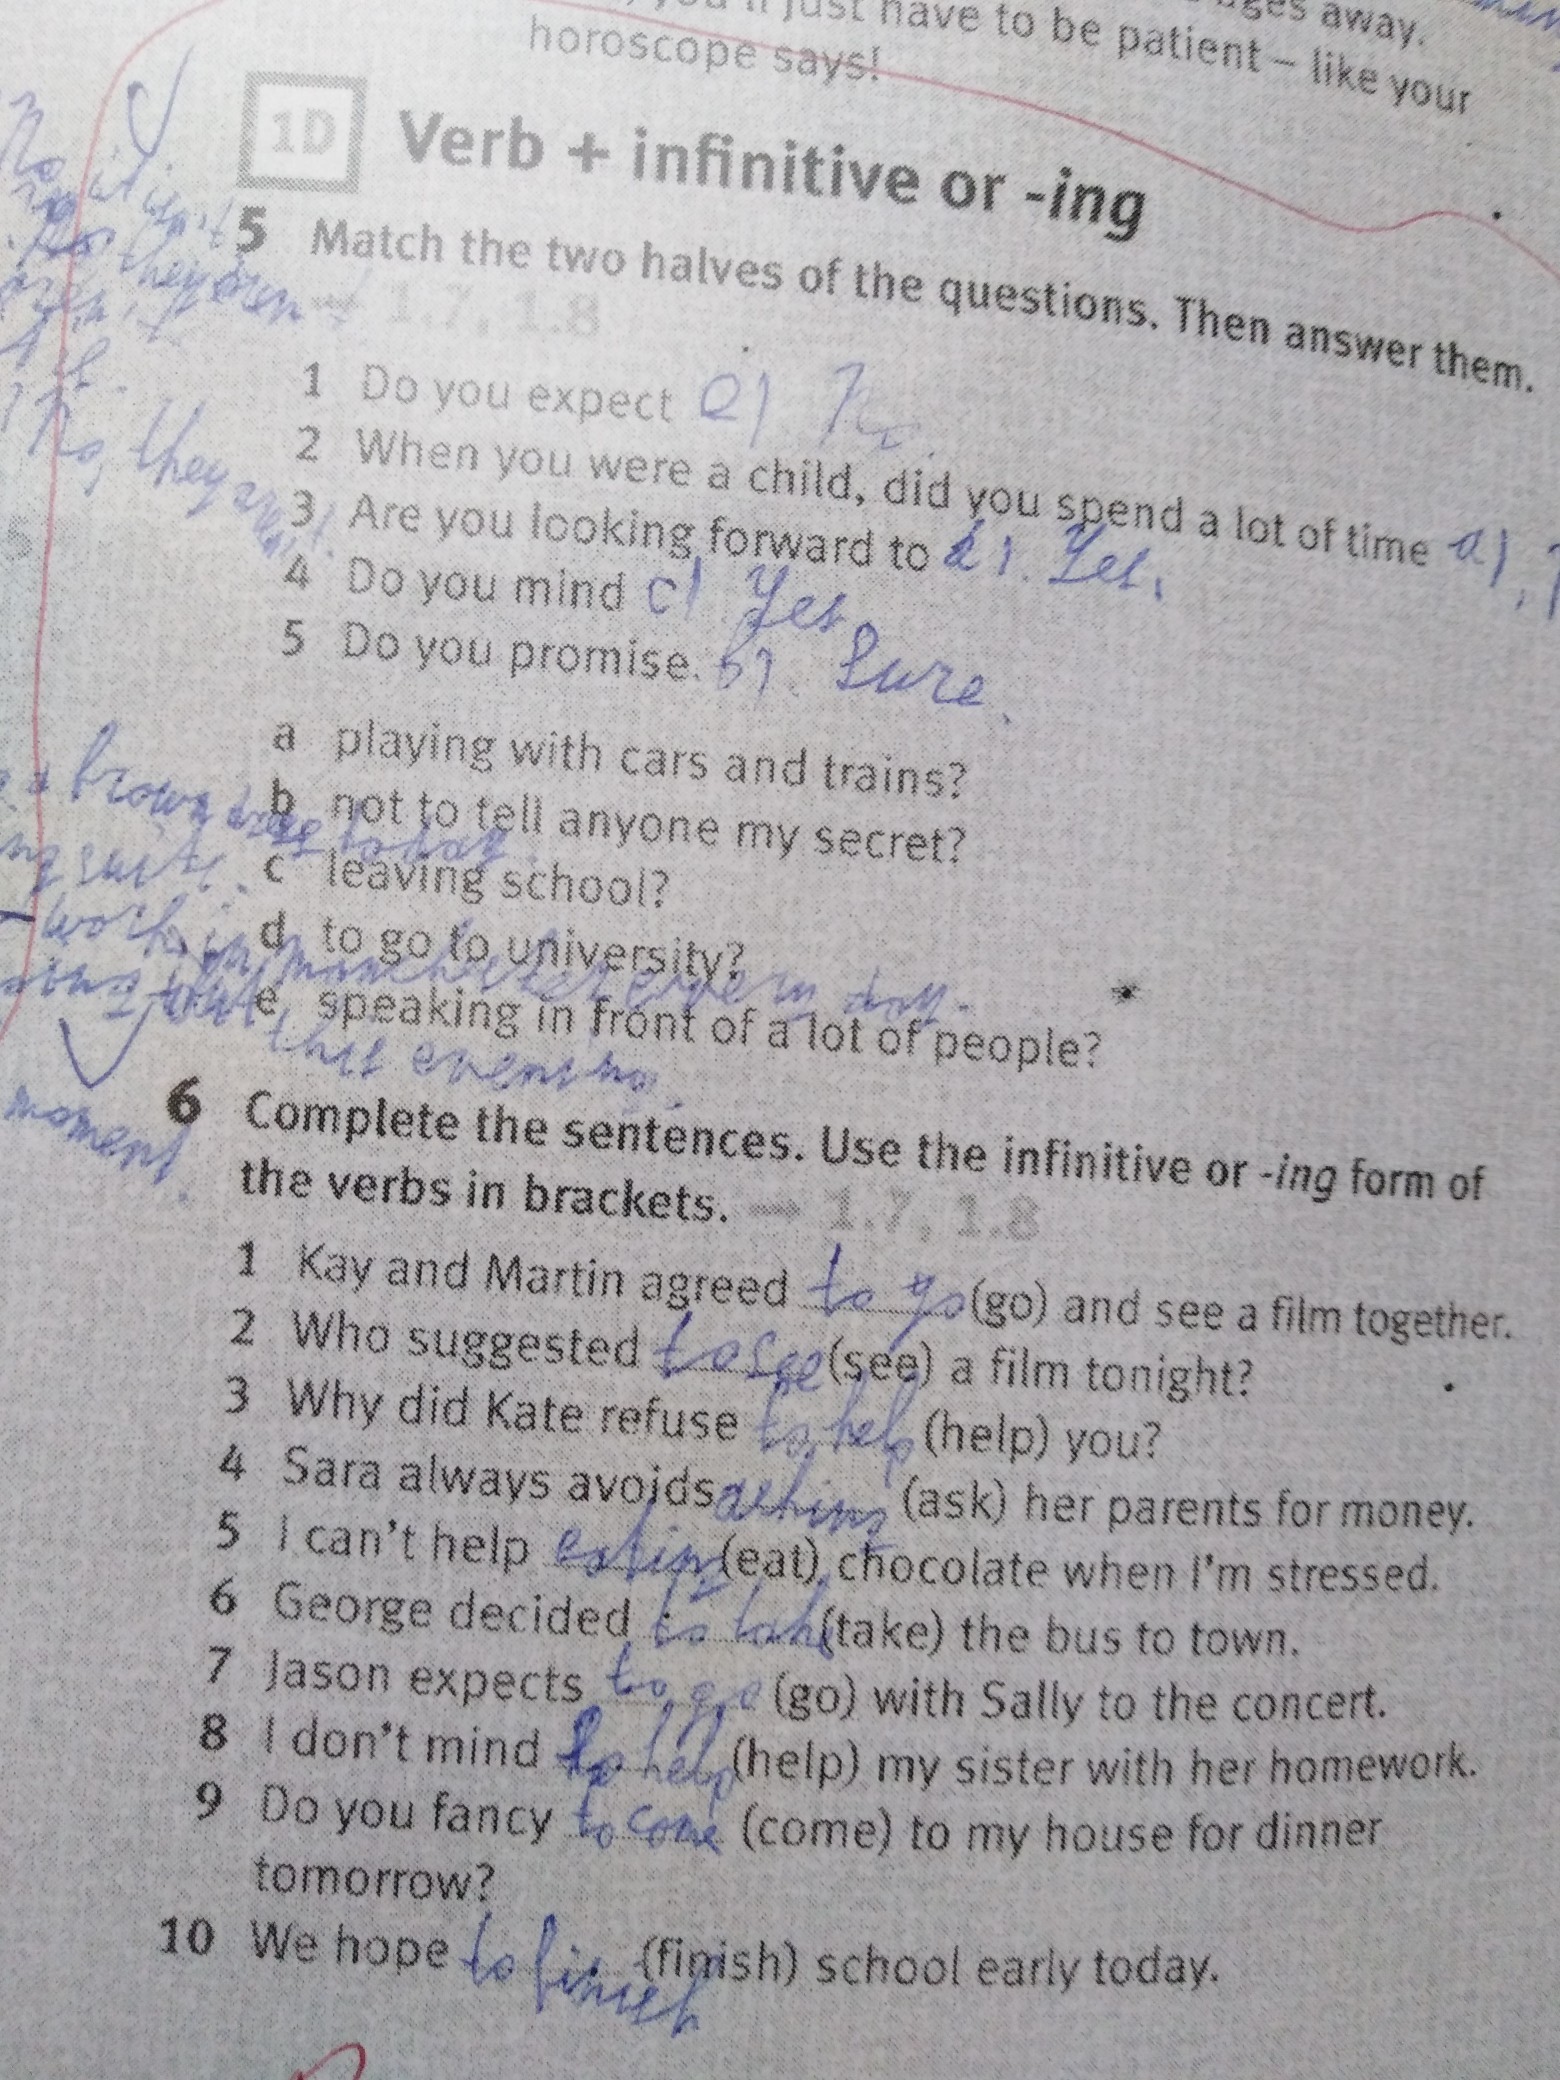 ages away.
you'll just have to be patient – like your
horoscope says!
1D Verb + infinitive or -ing
5 Match the two halves of the questions. Then answer them.
1.7, 1.8
1 Do you expect e) No.
2 When you were a child, did you spend a lot of time a).
3 Are you looking forward to Yes.
4 Do you mind c) Yes
5 Do you promise. b). Sure.
a playing with cars and trains?
b not to tell anyone my secret?
c leaving school?
d to go to university?
e speaking in front of a lot of people?
this evening.
moment.
6 Complete the sentences. Use the infinitive or -ing form of
the verbs in brackets. → 1.7, 1.8
1 Kay and Martin agreed to go (go) and see a film together.
2 Who suggested to see (see) a film tonight?
3 Why did Kate refuse to help (help) you?
4 Sara always avoids asking (ask) her parents for money.
5 I can't help eating (eat) chocolate when I'm stressed.
6 George decided to take (take) the bus to town.
7 Jason expects to go (go) with Sally to the concert.
8 I don't mind to help (help) my sister with her homework.
9 Do you fancy to come (come) to my house for dinner
tomorrow?
10 We hope to finish (finish) school early today.